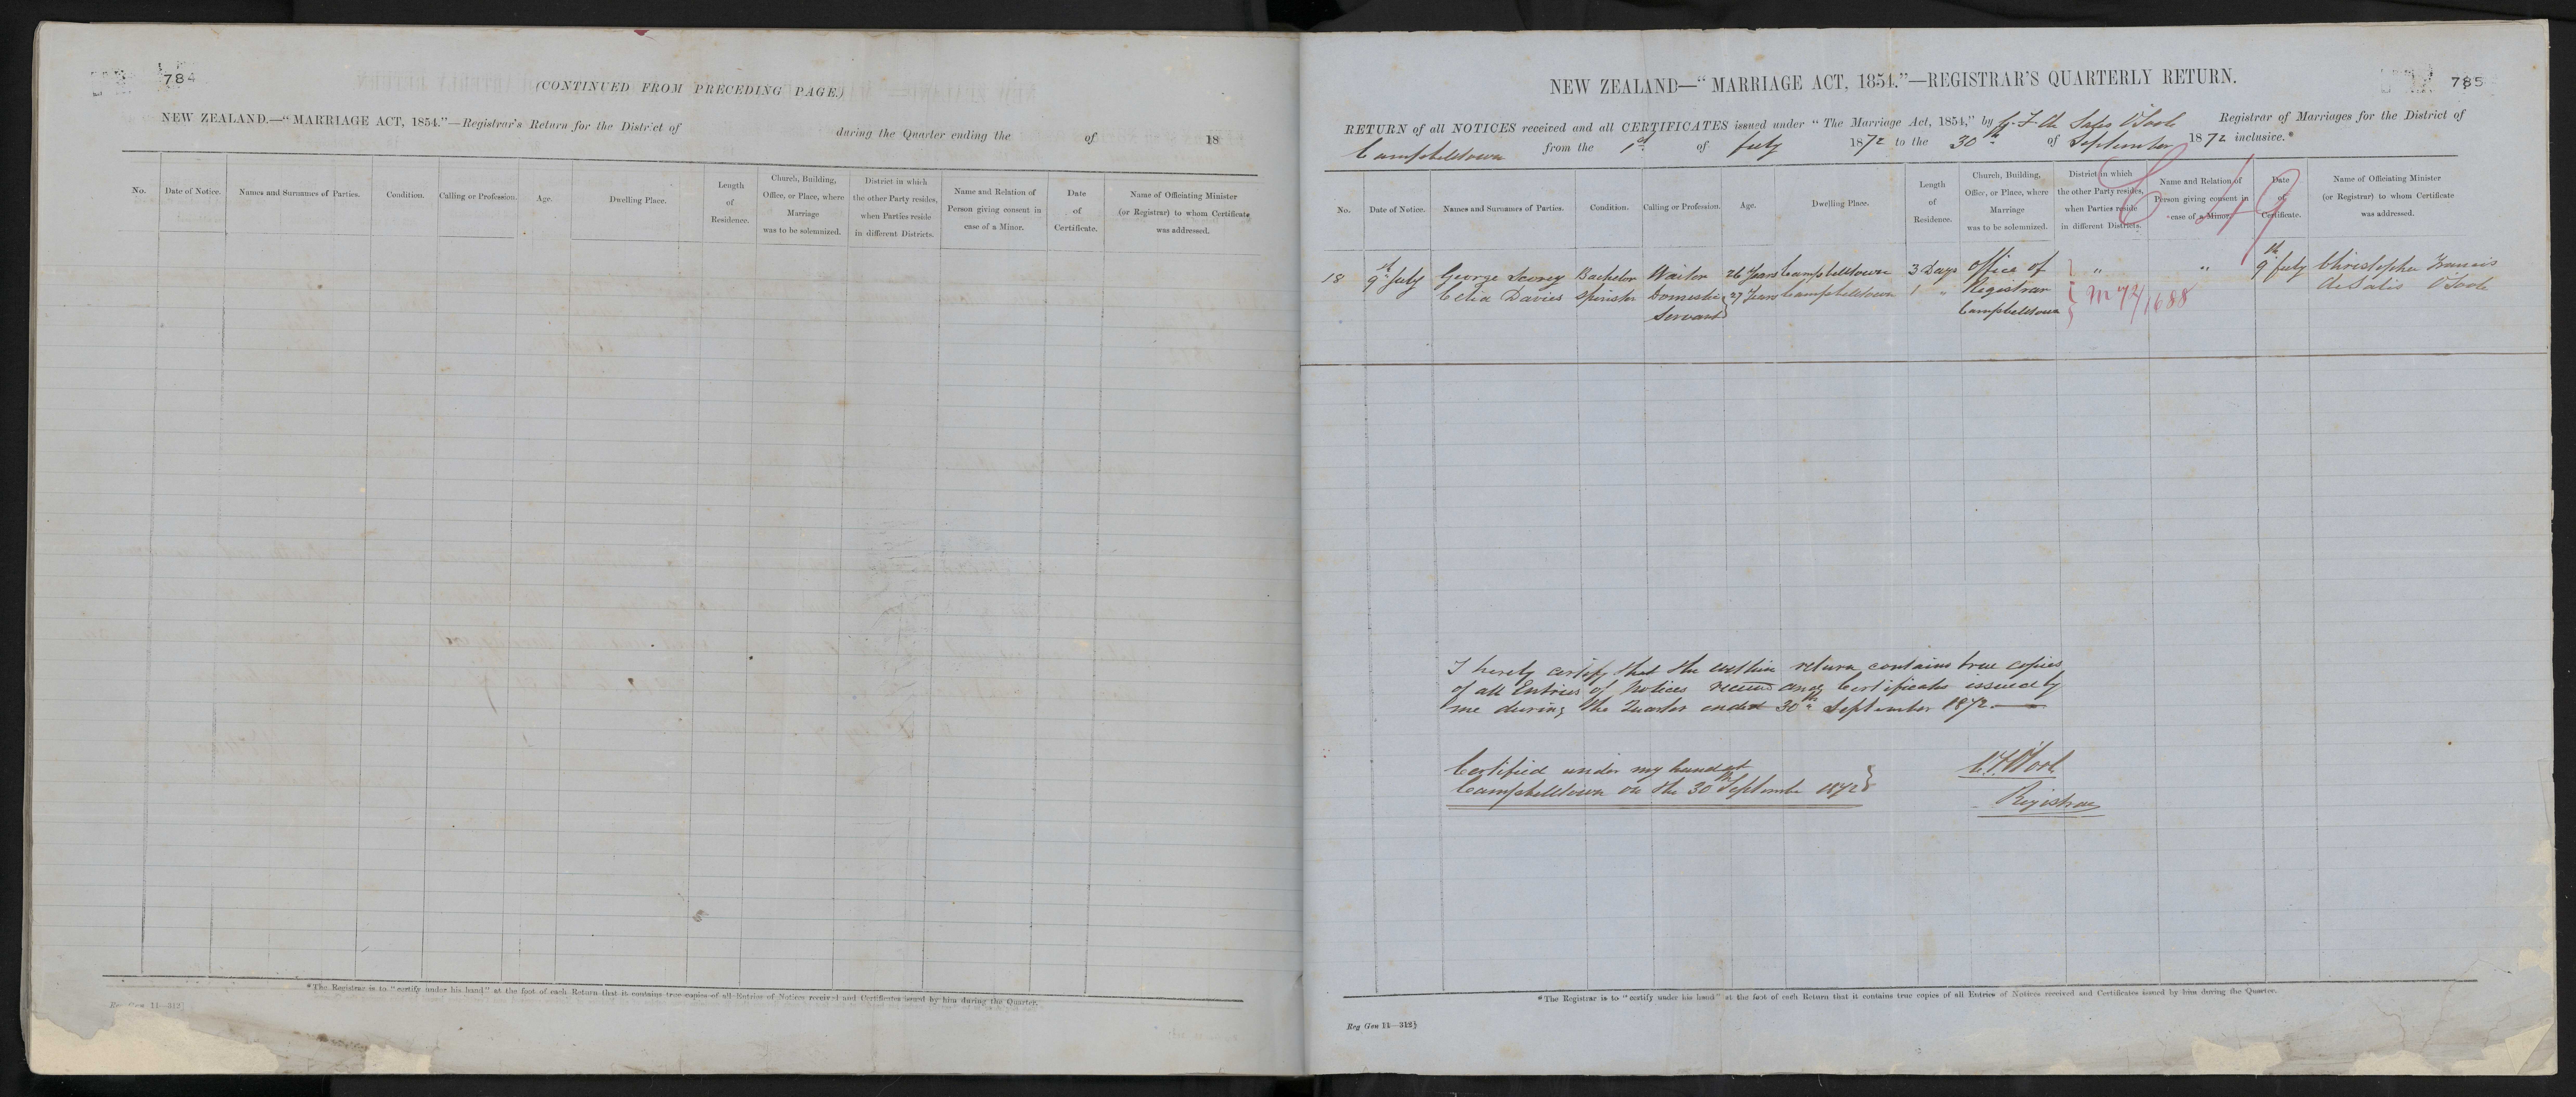 784
(CONTINUED FROM PRECEDING PAGE.)
NEW ZEALAND.—"MARRIAGE ACT, 1854."—Registrar's Return for the District of during the Quarter ending the of 18
No.
Date of Notice.
Names and Surnames of Parties.
Condition.
Calling or Profession.
Age.
Dwelling Place.
Length
of
Residence.
Church, Building,
Office, or Place, where
Marriage
was to be solemnized.
District in which
the other Party resides,
when Parties reside
in different Districts.
Name and Relation of
Person giving consent in
case of a Minor.
Date
of
Certificate.
Name of Officiating Minister
(or Registrar) to whom Certificate
was addressed.
*The Registrar is to "certify under his hand" at the foot of each Return that it contains true copies of all Entries of Notices received and Certificates issued by him during the Quarter.
Reg Gen 11—312½
785
NEW ZEALAND—"MARRIAGE ACT, 1854."—REGISTRAR'S QUARTERLY RETURN.
RETURN of all NOTICES received and all CERTIFICATES issued under "The Marriage Act, 1854," by F de Salis O'Toole Registrar of Marriages for the District of
Campbelltown from the 1st of July 1872 to the 30th of September 1872 inclusive.*
No.
Date of Notice.
Names and Surnames of Parties.
Condition.
Calling or Profession.
Age.
Dwelling Place.
Length
of
Residence.
Church, Building,
Office, or Place, where
Marriage
was to be solemnized.
District in which
the other Party resides,
when Parties reside
in different Districts.
Name and Relation of
Person giving consent in
case of a Minor.
Date
of
Certificate.
Name of Officiating Minister
(or Registrar) to whom Certificate
was addressed.
C 49
18 9 July George Bachelor Waiter 26 Years Campbelltown 3 Days Office of " " 9th July Christopher Francis
Celia Davies Spinster Domestic 27 Years Campbelltown 1 " Registrar M 72/1688 de Salis O'Toole
Servant Campbelltown
I hereby certify that the within return contains true copies
of all Entries of Notices received and Certificates issued by
me during the Quarter ended 30th September 1872.
Certified under my hand at
Campbelltown on the 30th September 1872
C.F. O'Toole
Registrar
*The Registrar is to "certify under his hand" at the foot of each Return that it contains true copies of all Entries of Notices received and Certificates issued by him during the Quarter.
Reg Gen 11—312½